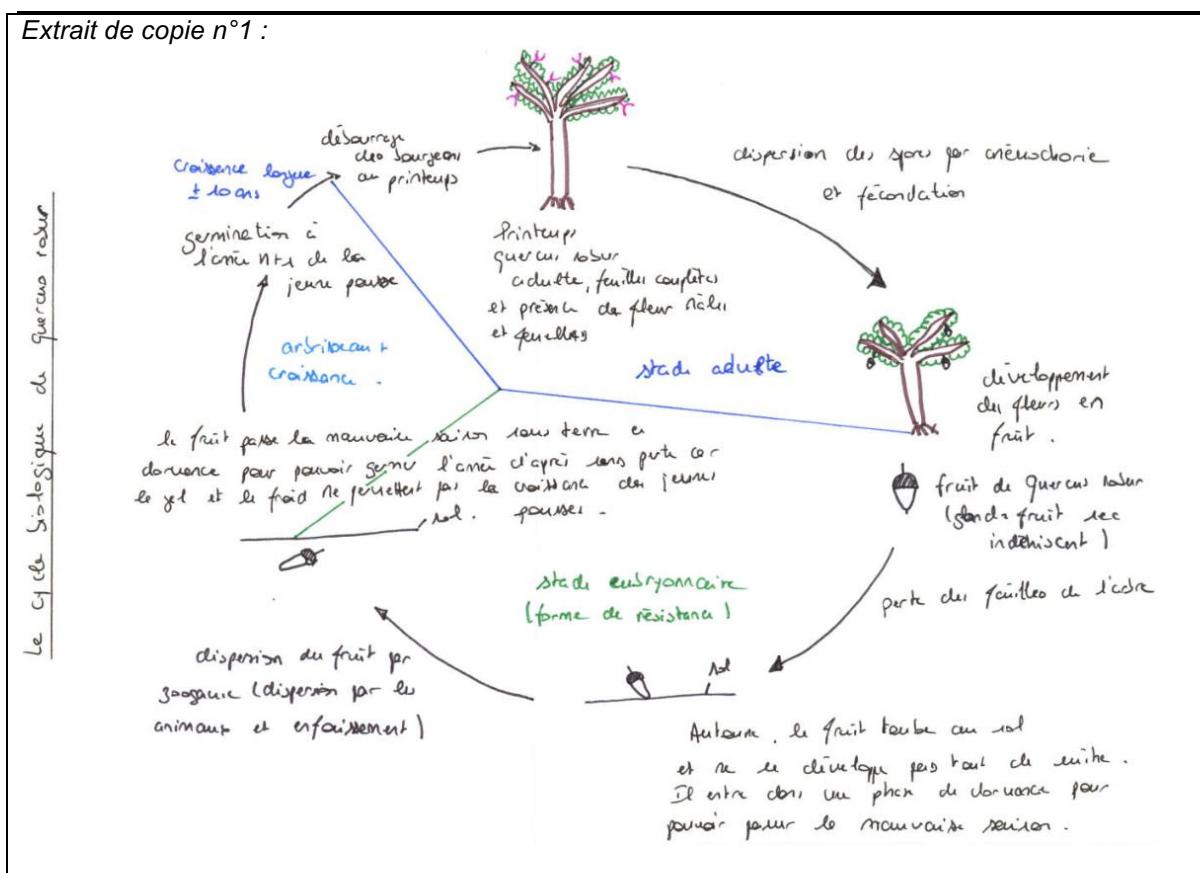 Extrait de copie n°1 :
Le cycle biologique de quercus robur
débourrage
des bourgeons
au printemps
croissance longue
± 10 ans
germination à
l'année N+1 de la
jeune pousse
arbrisseau +
croissance .
Printemps
quercus robur
adulte, feuilles complètes
et présence de fleur mâles
et femelles
dispersion des spores par anémochorie
et fécondation
stade adulte
développement
des fleurs en
fruit .
fruit de Quercus robur
(gland = fruit sec
indéhiscent)
perte des feuilles de l'arbre
le fruit passe la mauvaise saison sous terre en
dormance pour pouvoir germer l'année d'après sans perte car
le gel et le froid ne permettent pas la croissance des jeunes
pousses .
sol .
stade embryonnaire
(forme de résistance)
sol
Automne, le fruit tombe au sol
et ne se développe pas tout de suite .
Il entre dans une phase de dormance pour
pouvoir passer la mauvaise saison .
dispersion du fruit par
(dispersion par les
animaux et enfouissement)